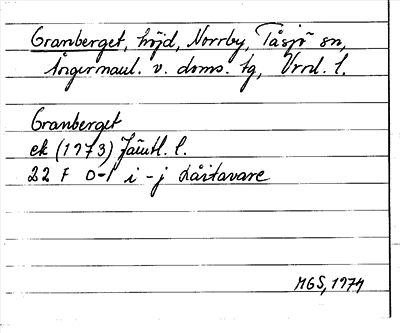 Granberget, höjd, Norrby, Tåsjö sn,
Ångermanl. v. doms. tg, Vrnl. l.
Granberget
ek (1973) Jämtl. l.
22 F 0-1 i-j Låitavare
MGS, 1974